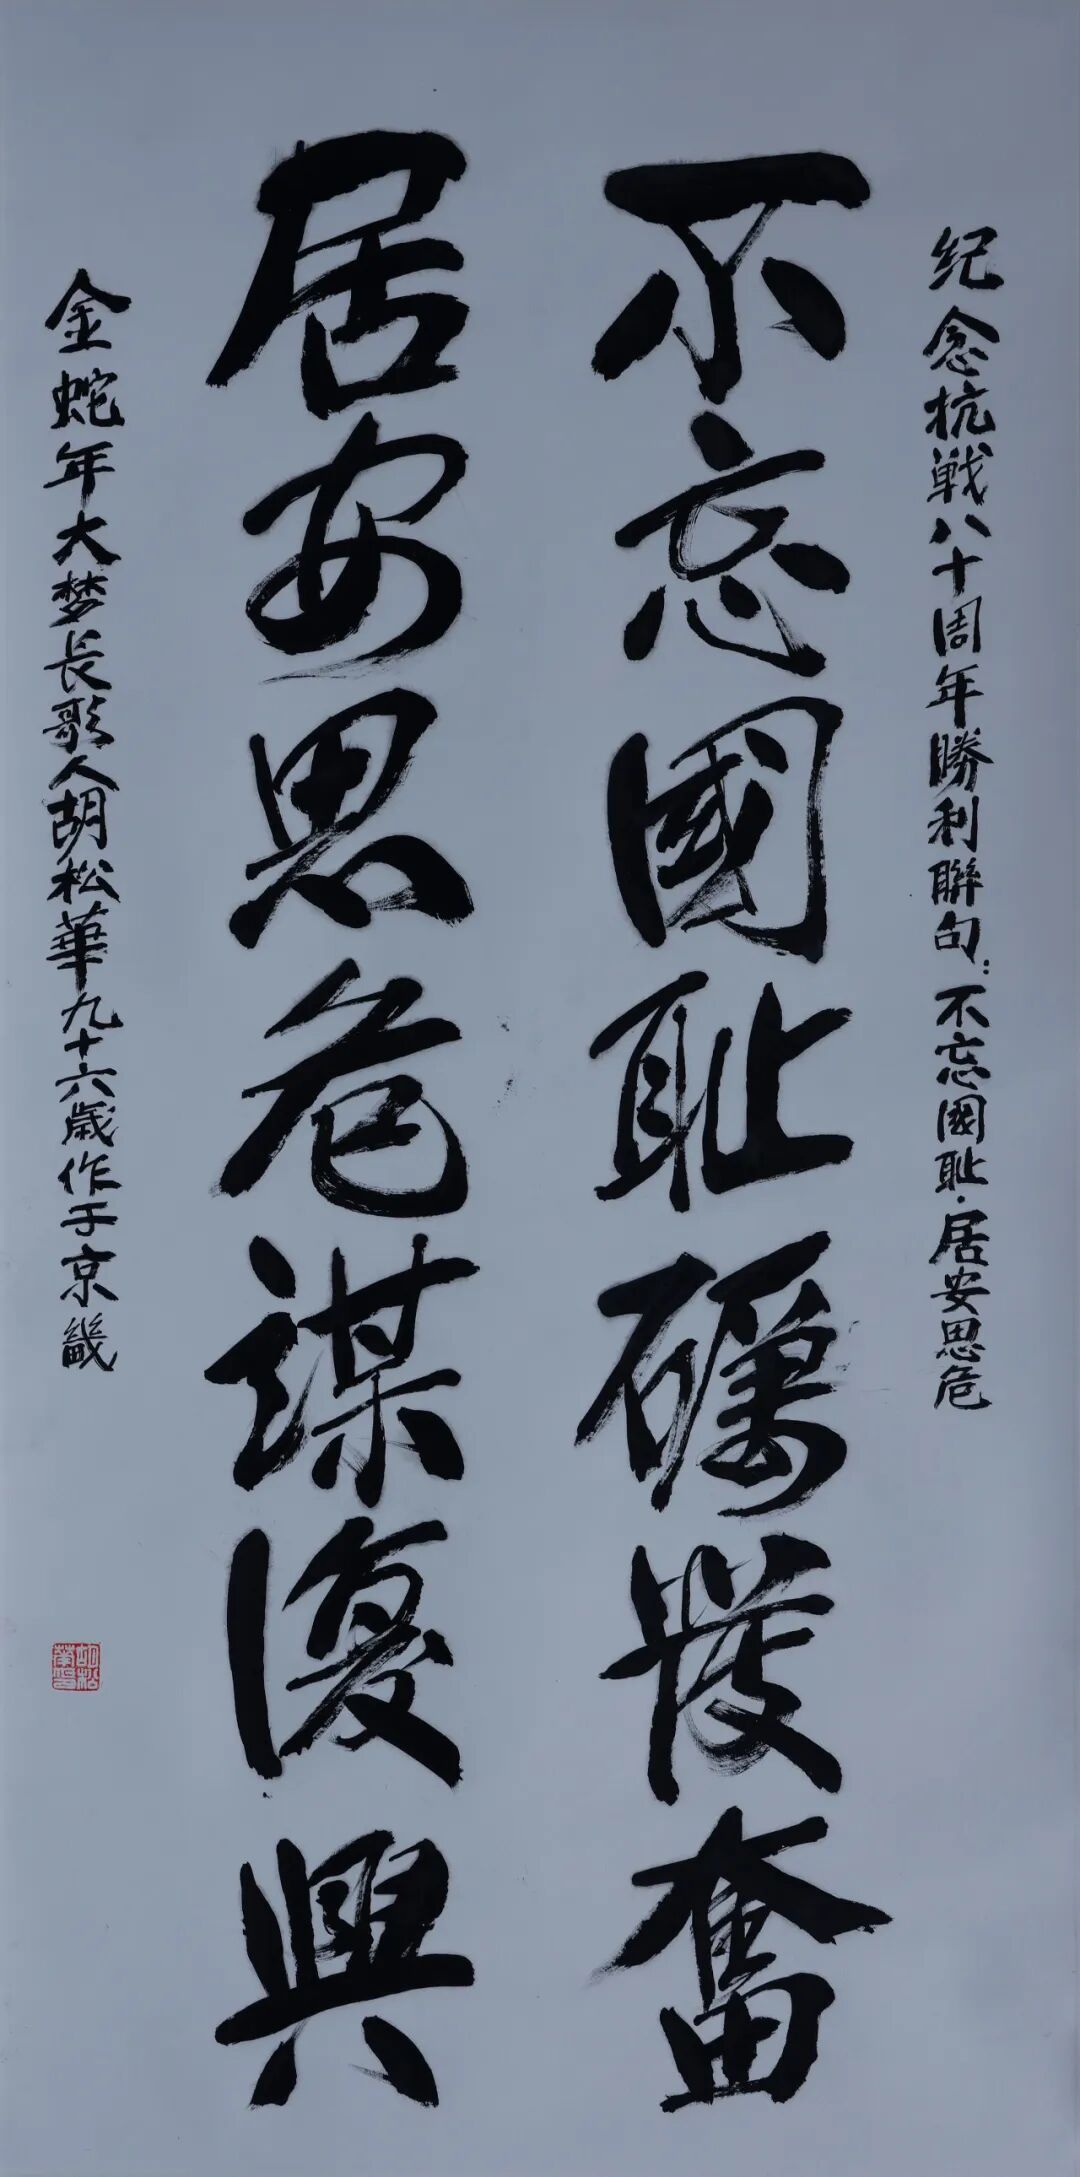 纪念抗戦八十周年勝利聯句:不忘國耻·居安思危
不忘國耻礪發奮
居安思危謀復興
金蛇年大梦長歌人胡松華九十六歲作于京畿
胡松華印